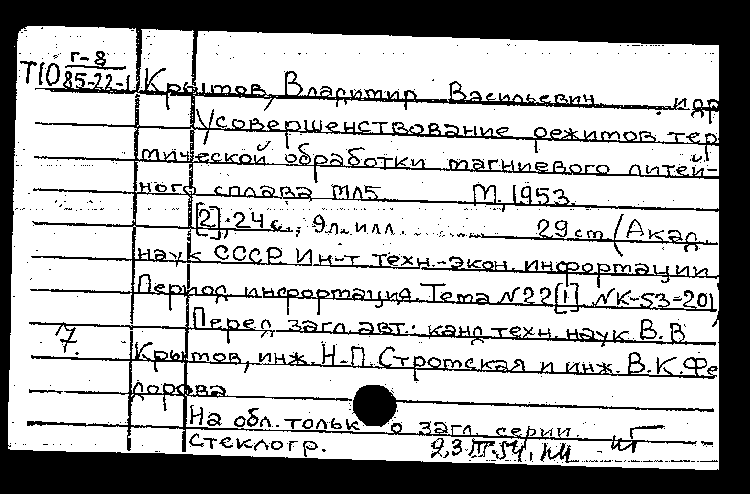 Г-8
Т10 85-22-1
Крымов, Владимир Васильевич и др
Усовершенствование режимов тер
мической обработки магниевого литей-
ного сплава МЛ5. М., 1953.
[2], 24 с., 9 л. илл. 29 см (Акад.
наук СССР. Ин-т техн.-экон. информации.
Период информация. Тема №22[1] №К-53-201
Перед загл. авт.: канд. техн. наук В.В
7. Крымов, инж. Н.П. Стромская и инж. В.К. Фе
дорова
На обл. только загл. серии
Стеклогр.